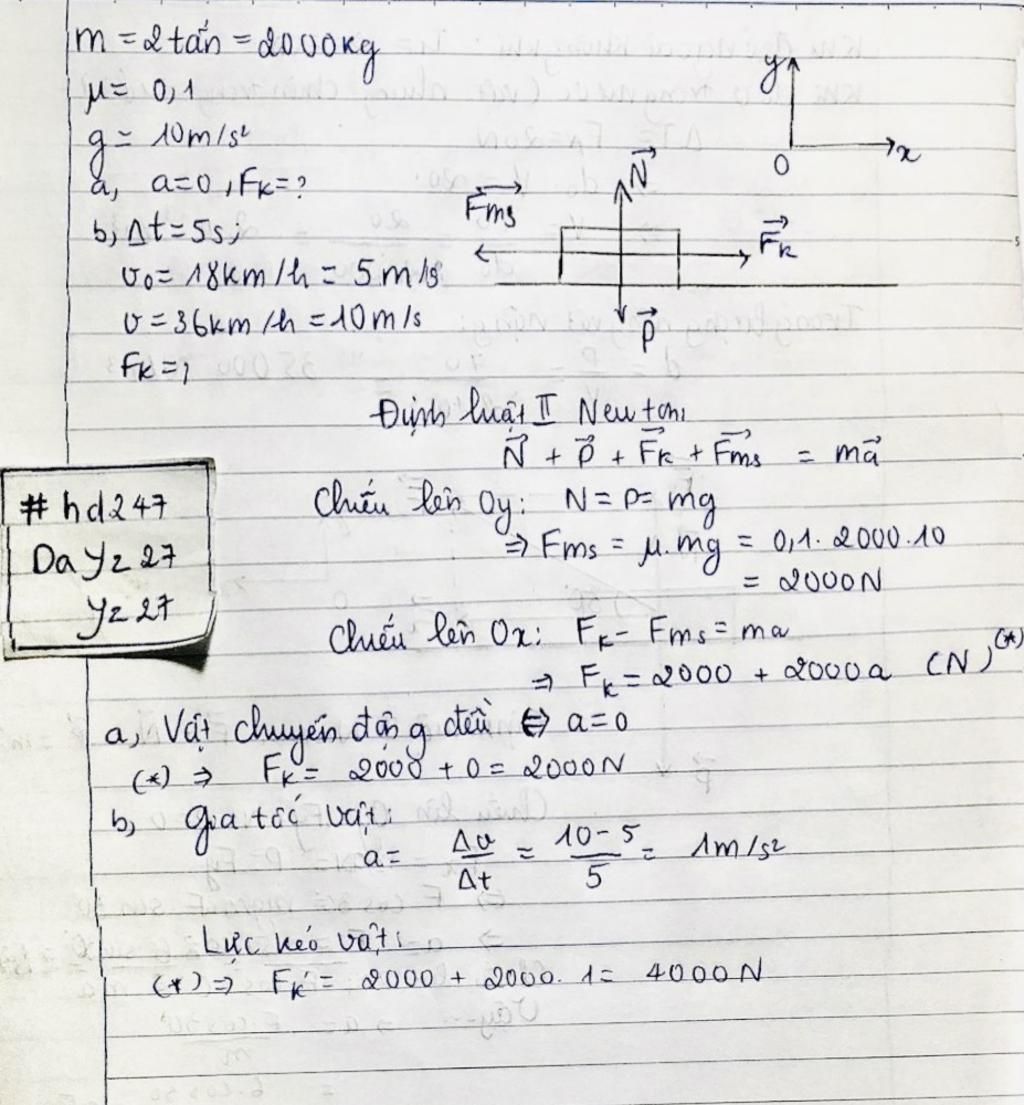 m = 2 tấn = 2000kg
μ = 0,1
g = 10m/s²
a, a=0, Fk=?
b, Δt=5s;
v₀= 18km/h = 5m/s
v=36km/h=10m/s
Fk=?
y
O
x
N
Fms
Fk
P
Định luật II Newton:
N + P + Fk + Fms = ma
Chiếu lên Oy: N = P = mg
⇒ Fms = μ.mg = 0,1.2000.10
= 2000N
Chiếu lên Ox: Fk - Fms = ma
⇒ Fk = 2000 + 2000a (N) (*)
a, Vật chuyển động đều ⇔ a=0
(*) ⇒ Fk = 2000 + 0 = 2000N
b, Gia tốc vật:
a = Δv/Δt = 10-5/5 = 1m/s²
Lực kéo vật:
(*) ⇒ Fk = 2000 + 2000.1 = 4000N
#hd247
DaYz27
Yz27